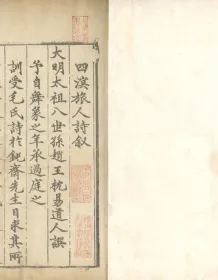 四溟旅人詩叙
大明太祖八世孫趙王枕易道人譔
予自舞象之年承過庭之
訓受毛氏詩於鈍齋先生日求其所